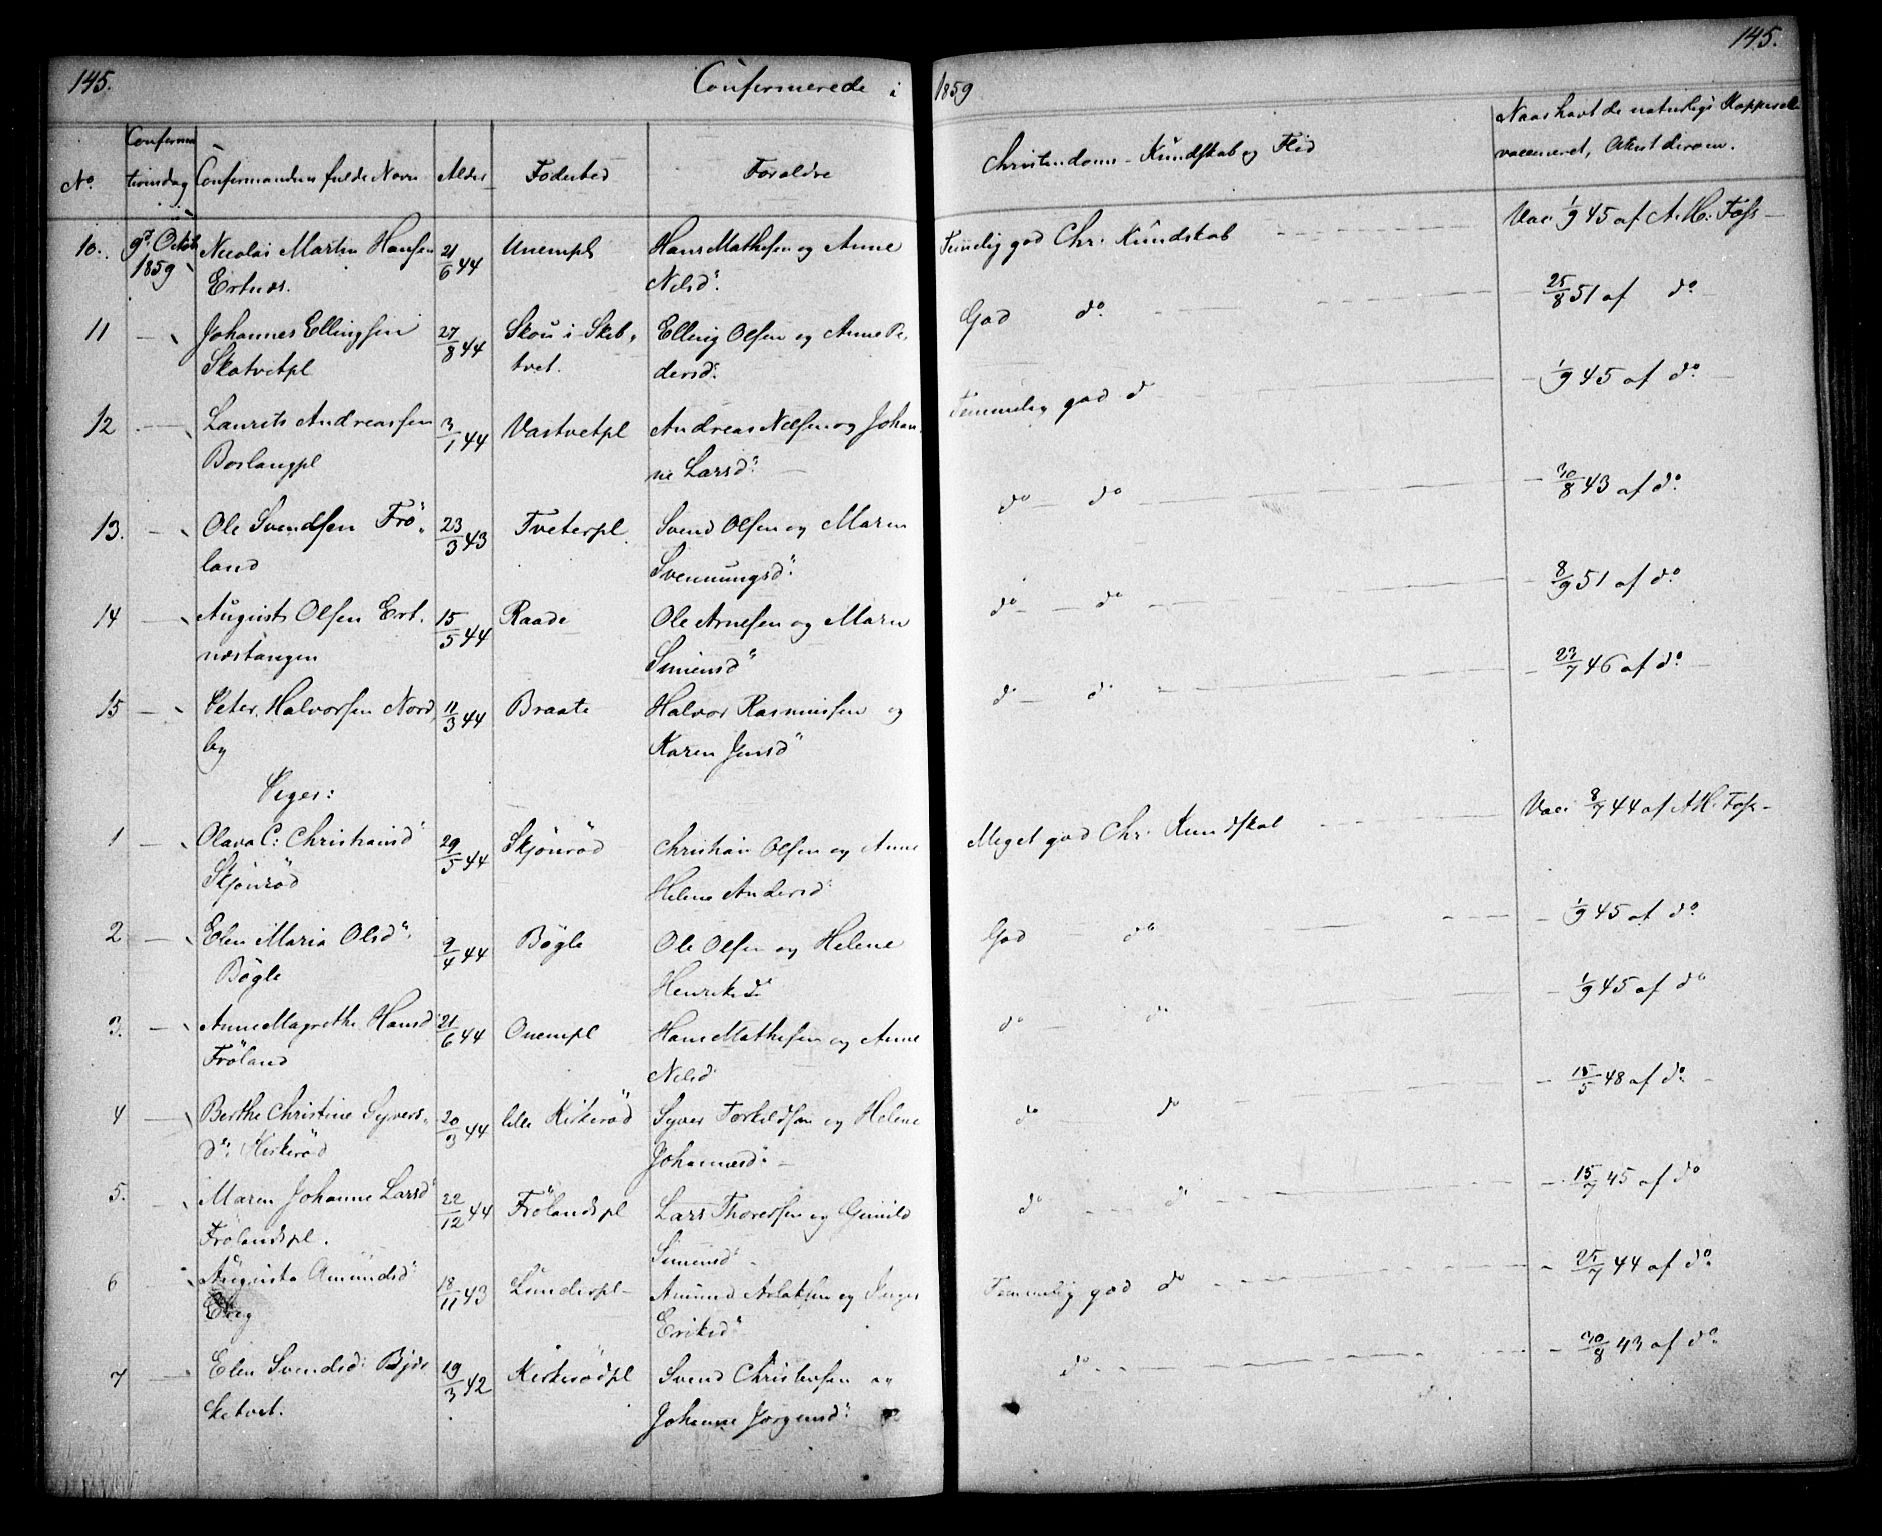 145. Confermerede i 1859 145.
No. Conferma tionsdag Confermandens fulde Navn Alder Fødested Forældre Christendoms-Kundskab og Flid Naar havt de naturlige Kopper ell
vaccineret, Attest derom.
10. 9de Octob 1859 Nicolai Martin Hansen 21/6 44 Unempl Hans Mathesen og Anne Temelig god Chr. Kundskab Vac. 1/9 45 af A. H. Foss
Ertnæs. Nilsd:
11 Johannes Ellingsen 27/8 44 Skou i Skib- Elling Olsen og Anne Pe- God do 25/8 51 af do
Skotvetpl tvet. dersd:
12 Laurits Andreassen 3/1 44 Vastvetpl Andreas Nilsen og Johan- Temmelig god d 1/9 45 af do
Boslangpl ne Larsd:
13. Ole Svendsen Frö- 23/3 43 Tveterpl. Svend Olsen og Maren do do 30/8 43 af do
land Svennungsd:
14 August Olsen Ert- 15/5 44 Raade Ole Arnesen og Maren do do 8/9 51 af do
næstangen Simensd
15 Peter Halvorsen Nord 11/3 44 Braate Halvor Rasmussen og do d 23/7 46 af do
by Karen Jensd
Piger:
1 Olava C: Christiansd 29/5 44 Skjönröd Christian Olsen og Anne Meget god Chr. Kundskab Vac 8/7 44 af A H. Foss
Skjönröd Helene Andersd:
2 Elen Maria Olsd. 9/4 44 Bögle Ole Olsen og Helene God do 1/9 45 af do
Bögle Henriksd
3. Anne Magrethe Hansd 21/6 44 Onempl Hans Mathesen og Anne do do 1/9 45 af do
Fröland Nilsd
4 Berthe Christine Syvers- 20/3 44 lille Kirkeröd Syver Torkildsen og Helene do do 15/5 48 af do
d: Kirkeröd Johannesd:
5. Maren Johanne Larsd 22/12 44 Frölandspl Lars Thoresen og Gunild do d 15/7 45 af do
Frölandspl. Simensd
6 Augusta Amundsd 18/11 43 Lunderspl Amund Aslaksen og Inger Temmelig god do 25/7 44 af do
Eriksd
7 Elen Svendsd: 19/3 42 Kirkerödpl Svend Christensen og do 30/8 43 af do
sketvet. Johanne Jörgensd: